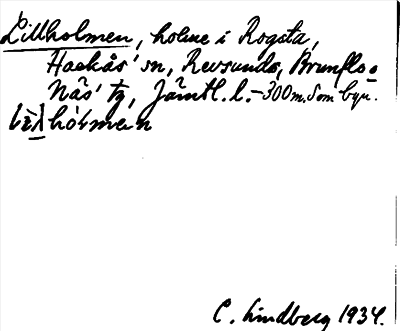 Lillholmen, holme i Rogsta,
Hackås' sn, Revsunds, Brunflo o
Näs' tg, Jämtl. l. – 300 m. S om byn.
hólmen
C. Lindberg 1934.